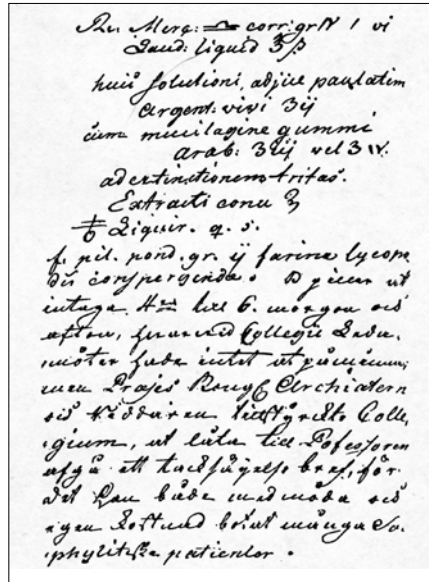 Rec. Merc: corr: gr IV / vi
Laud: liquid ʒ β
huic solutioni, adjice paulatim
Argent: vivi ʒ ij
cum mucilagine gummi
arab: ʒ iij vel ʒ iv.
ad extinctionem tritas.
Extracti conii ʒ
Liquir. q. s.
f. pil. pond. gr. ij farina lycopo
dii conspergendæ. D
intaga 4 til 6. morgon och
afton, Collegii Leda-
möter hade intet at påminna;
men Præses Archiatern
och Riddaren tillstyrckte Colle-
gium, at låta till Professoren
afgå ett tacksäyelse bref, för
det han både med möda och
egen kostnad botat många Sy-
philitiske patienter.